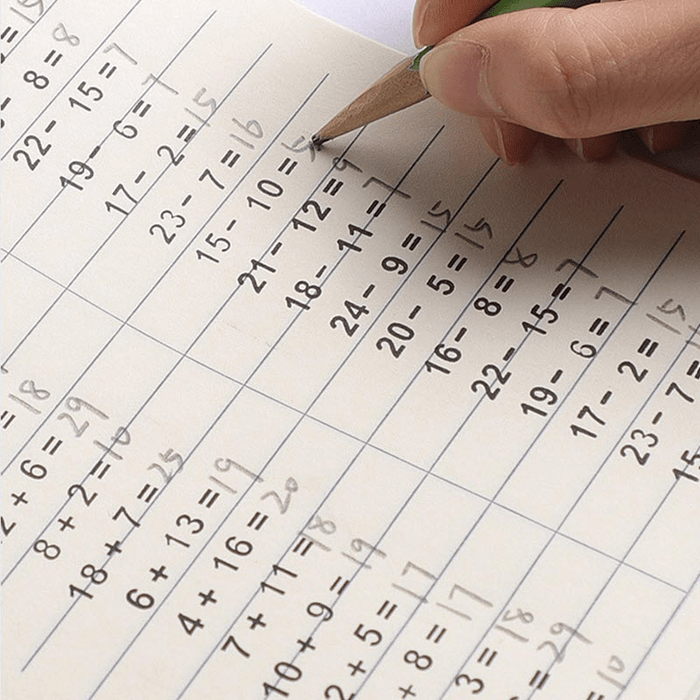 =15
- 8= 8
22- 15= 7
19- 6= 7
17- 2= 15
23- 7= 16
15- 10= 5
21- 12= 9
18- 11= 7
24- 9= 15
20- 5= 15
16- 8= 8
22- 15= 7
19- 6= 7
17- 2= 15
23- 7=
15-
= 18
2 + 6 = 29
8 + 2 = 10
18 + 7 = 25
6 + 13 = 19
4 + 16 = 20
7 + 11 = 18
10 + 9 = 19
2 + 5 = 17
+ 8 = 17
3 = 18
= 29
10